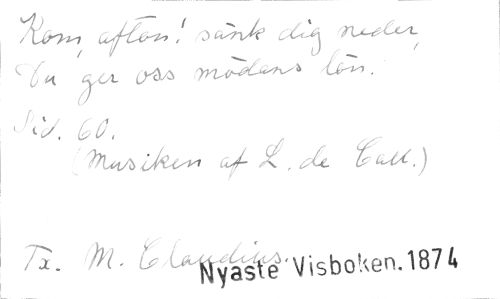 Kom, afton! sänk dig neder,
Du ger oss mödans lön.
Sid. 60.
(Musiken af L. de Call.)
Tx. M. Claudius.
Nyaste Visboken. 1874